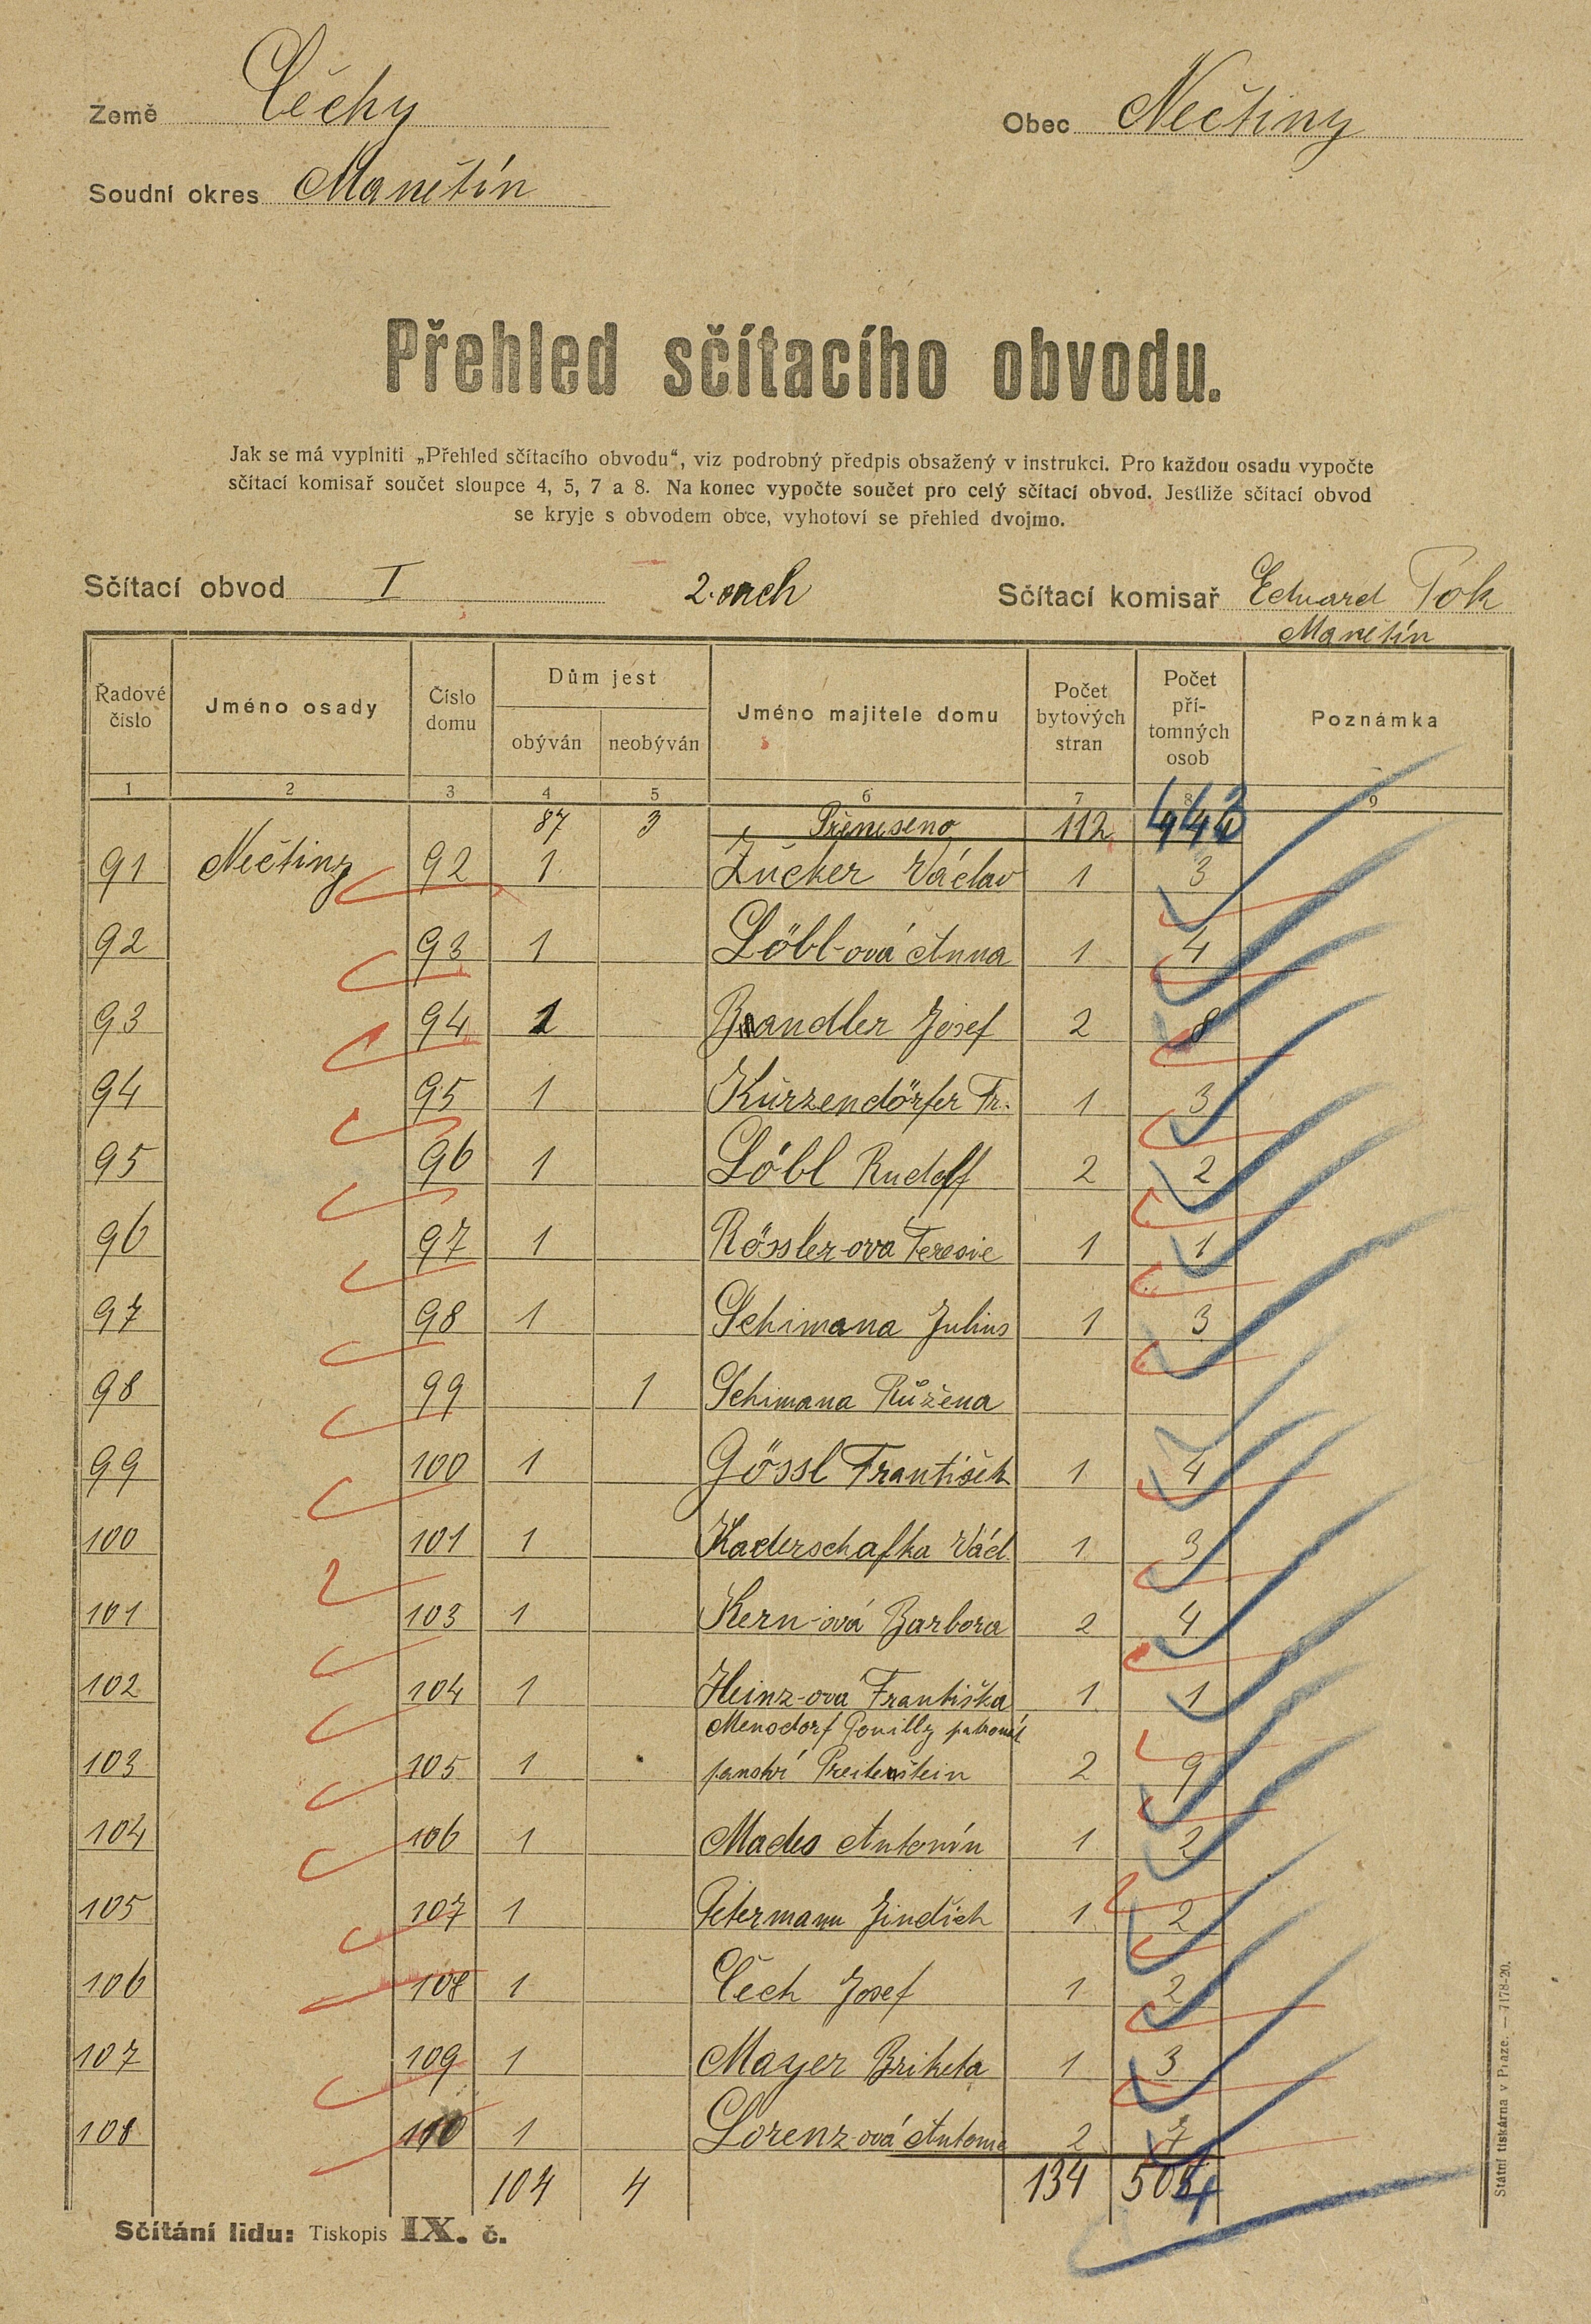 Země Čechy
Obec Nečtiny
Soudní okres Manětín
Přehled sčítacího obvodu.
Jak se má vyplniti „Přehled sčítacího obvodu“, viz podrobný předpis obsažený v instrukci. Pro každou osadu vypočte
sčítací komisař součet sloupce 4, 5, 7 a 8. Na konec vypočte součet pro celý sčítací obvod. Jestliže sčítací obvod
se kryje s obvodem obce, vyhotoví se přehled dvojmo.
Sčítací obvod I 2. Sčítací komisař Eduard Pok
Manětín
Řadové číslo Jméno osady Číslo domu Dům jest obýván neobýván Jméno majitele domu Počet bytových stran Počet pří-tomných osob Poznámka
1 2 3 4 5 6 7 8 9
87 3 Přeneseno 112
91 Nečtiny 92 1 Zucker Václav 1 3
92 93 1 Löbl-ová Anna 1 4
93 94 1 Brandler Josef 2 8
94 95 1 Kürzendörfer Fr. 1 3
95 96 1 Löbl Rudolf 2 2
96 97 1 Rössler-ova Teresie 1 1
97 98 1 Schimana Julius 1 3
98 99 1 Schimana Růžena
99 100 1 Gössl František 1 4
100 101 1 Kaderschafka Václ. 1 3
101 103 1 Kern-ová Barbora 2 4
102 104 1 Heinz-ova Františka 1 1
Mensdorf Pouilly patronát
103 105 1 panství Preitenštein 2 9
104 106 1 Mades Antonín 1 2
105 107 1 Petermann Jindřich 1 2
106 108 1 Čech Josef 1 2
107 109 1 Mayer Briketa 1 3
108 110 1 Lorenz-ová Antonie 2 7
104 4 134 504
Sčítání lidu: Tiskopis IX. č.
Státní tiskárna v Praze. — 7178-20.